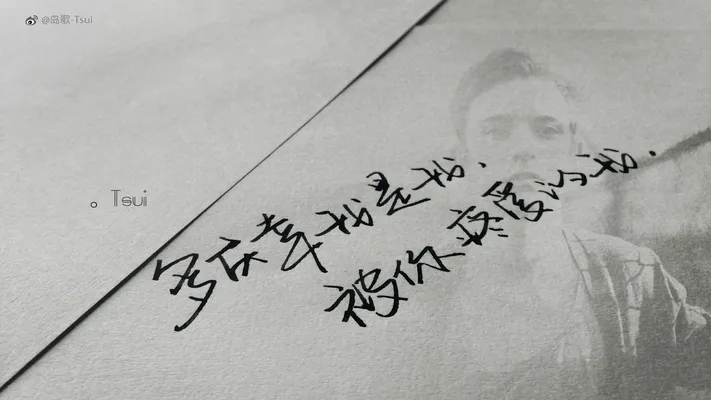 @岛歌-Tsui
。Tsui
多庆幸我是我.
被你疼爱的我.